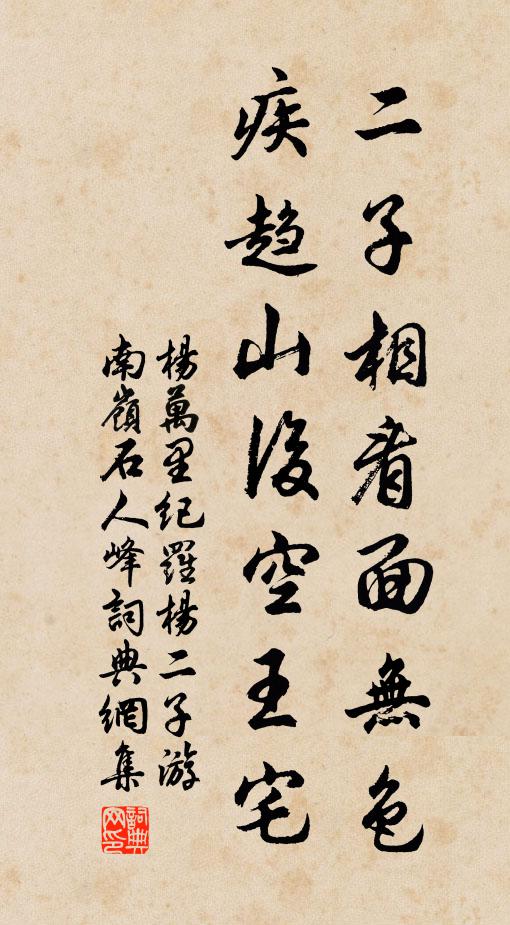 二子相看面無色
疾趨山後空王宅
楊萬里紀羅楊二子游
南嶺石人峰詞典網集
詞典网印